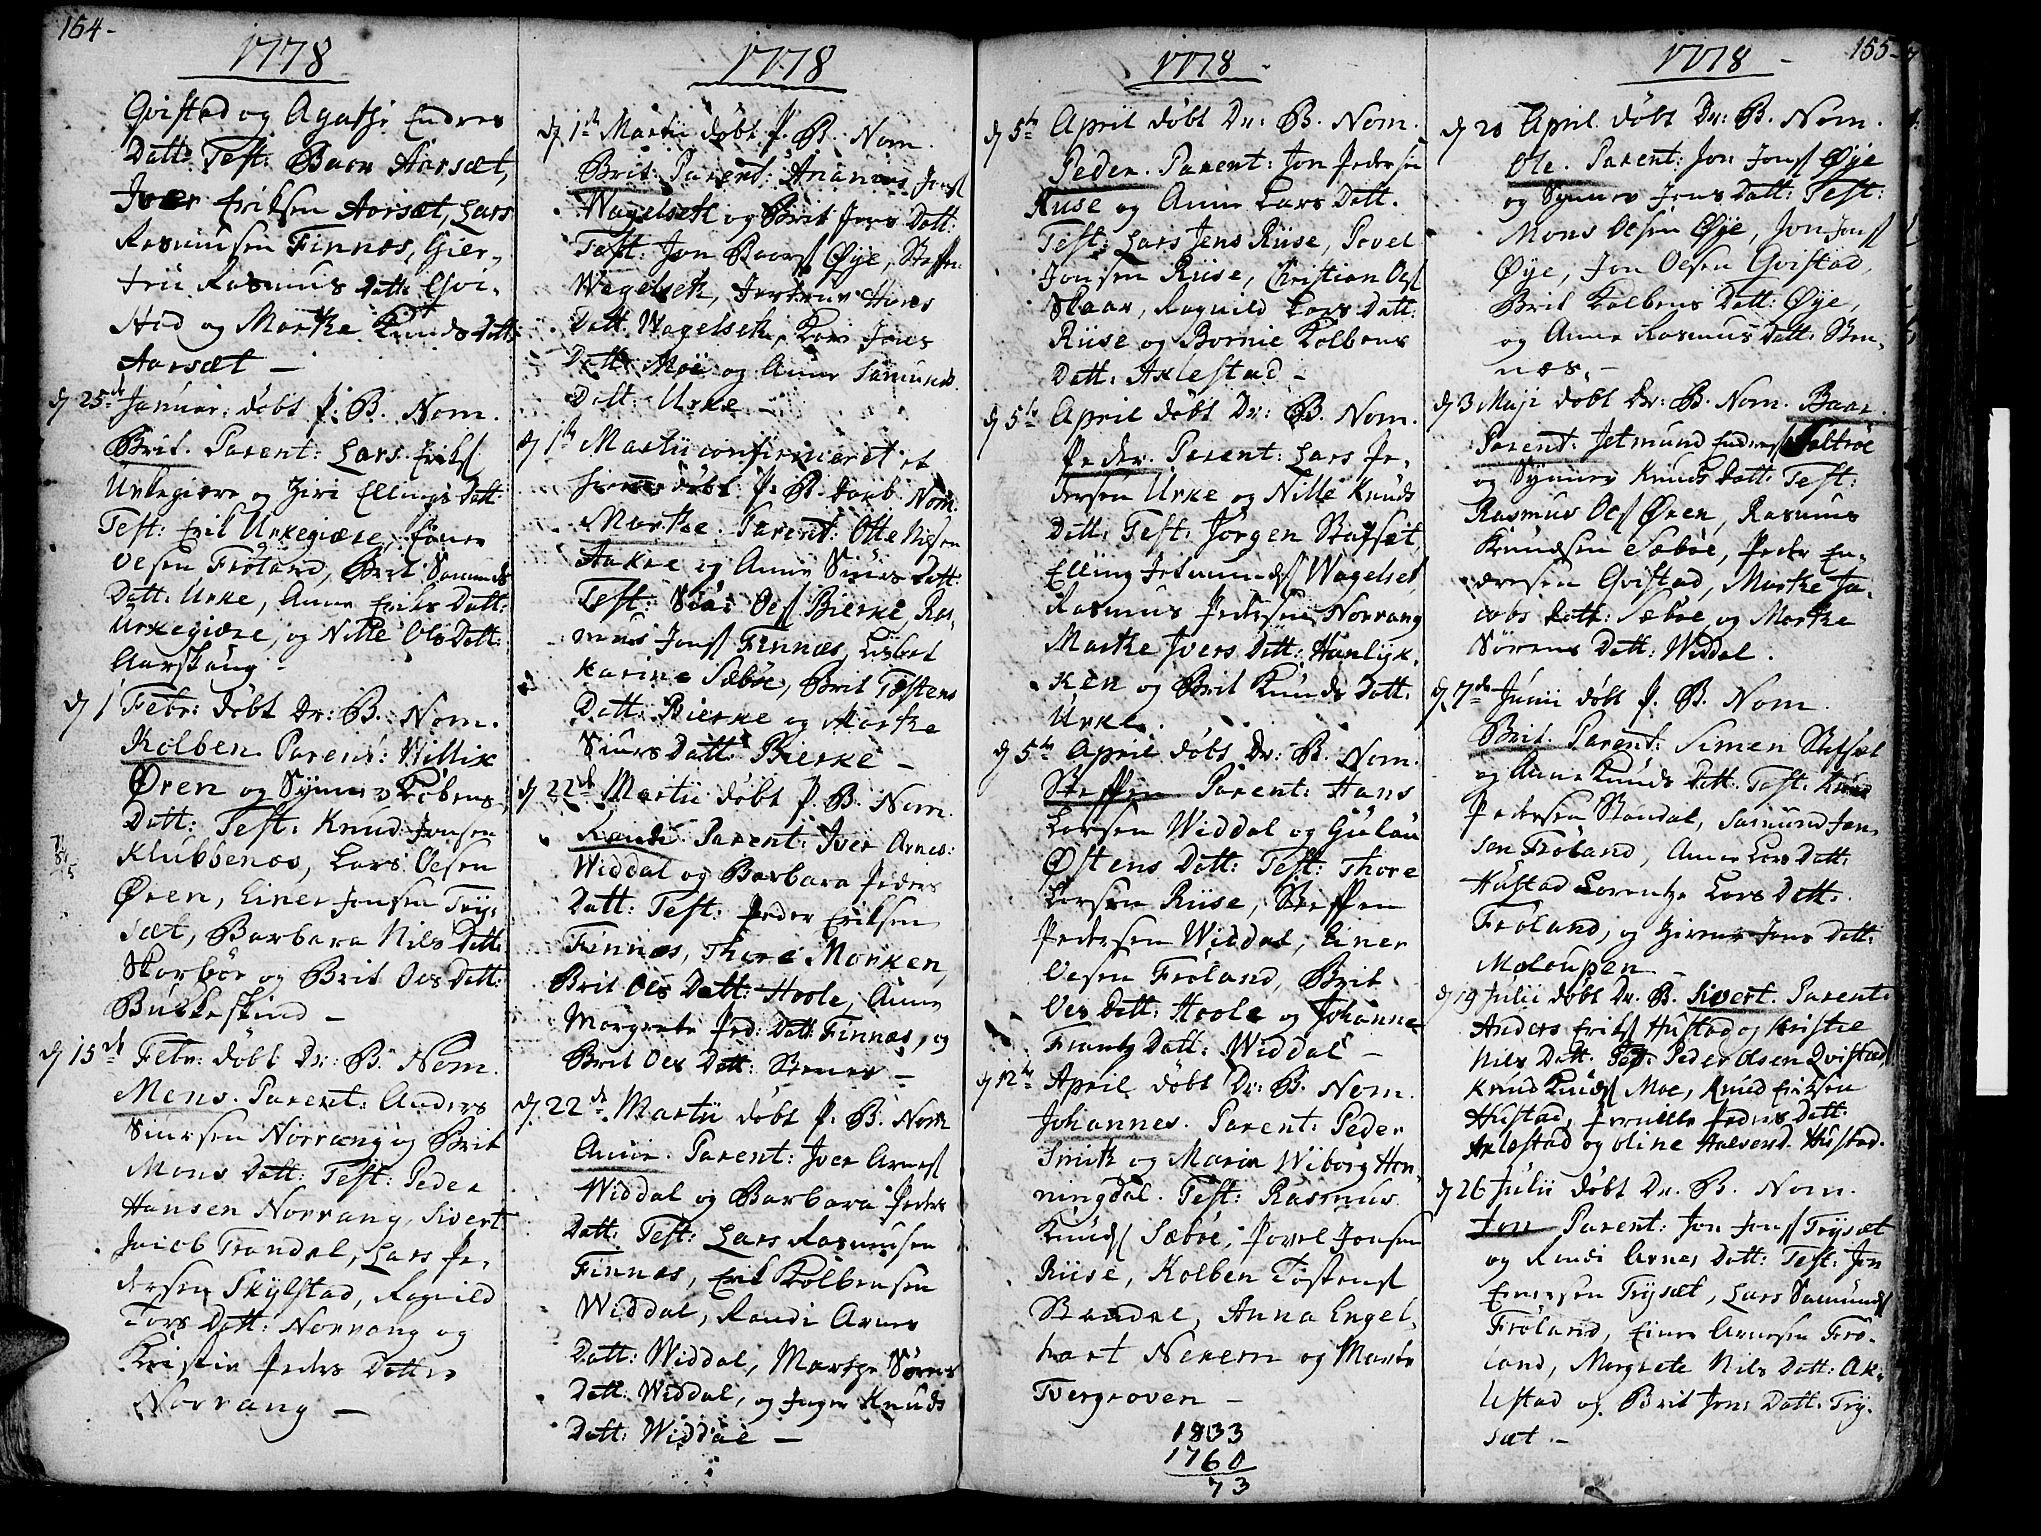 164-
1778
Qvistad og Agathe Endres
Datt: Test: Baar Aarsæt,
Iver Eriksen Aarsæt, Lars
Rasmusen Finnæs, Gier-
tru Rasmus Datt: Qvi-
stad og Marthe Knuds Datt:
Aarsæt -
d 25de Januar: døbt P: B. Nom.
Brit. Parent: Lars Eriks
Urkegiære og Giri Ellings Datt:
Test: Erik Urkegiære, Einer
Oesen Frøland, Brit Samunds
Datt: Urke, Anne Eriks Datt:
Urkegiære, og Nille Ols Datt:
Aarskaug -
d 1 Febr: døbt Dr: B. Nom.
Kolben Parent: Willix
Øren og Synnev Kolbens
Datt: Test: Knud Jonsen
Klubbenæs, Lars Oesen
Øren, Einer Jonsen Try-
sæt, Barbara Nils Datt:
Skorbøe og Brit Oes Datt:
Bukkeskind -
d 15de Febr: døbt Dr: B. Nom.
Mons. Parent: Anders
Siursen Norrang og Brit
Mons Datt: Test: Peder
Hansen Norrang, Sivert
Jacob Trandal, Lars Pe-
dersen Skylstad, Ragnild
Tors Datt: Norrang og
Kristie Peders Datter
Norrang -
1778
d 1de Martii døbt P. B. Nom.
Brit Parent: Ananias Jens
Wagelseth og Brit Jens Datt:
Test: Jon Baars Øye, Steffen
Wagelseth, Hans
Datt: Wagelseth, Kari Jons
Datt: Moe og Anne Samunds
Datt: Urke -
d 1de Martii confirmeret et
hiemedøbt P. B. Nom.
Marthe. Parent: Otte Nilsen
Aakre og Anne Siurs Datt:
Test: Siur Oes Bierke, Ras-
mus Jons Finnæs, Lisbet
Karine Sæbøe, Brit Tostens
Datt: Bierke og Marthe
Siurs Datt: Bierke -
d 22de Martii døbt P. B. Nom.
Randi Parent: Iver Arnes:
Widdal og Barbara Peders
Datt: Test: Peder Eriksen
Finnæs, Thore Morken,
Brit Oes Datt: Hoole, Anne
Margrete Ped: Datt: Finnæs, og
Brit Oes Datt: Stenes -
d. 22de Martii døbt P. B. Nom
Anne. Parent: Iver Arnes
Widdal og Barbara Peders
Datt: Test: Lars Rasmusen
Finnæs, Erik Kolbensen
Widdal, Randi Arnes
Datt: Widdal, Marthe Sørens
Datt: Widdal, og Inger Knuds
Datt: Widdal -
1778 -
d 5te April døbt Dr: B. Nom.
Peder. Parent: Jon Pedersen
Riise og Anne Lars Datt.
Test: Lars Jens Riise, Povel
Jonsen Riise, Christian Oes
Skaar, Ragnild Lars Datt:
Riise og Bornie Kolbens
Datt: Axlestad -
d 5te April døbt Dr: B. Nom.
Peder. Parent: Lars Pe-
dersen Urke og Nille Knuds
Datt: Test: Jørgen Stafset,
Elling Jetmunds Wagelset
Rasmus Pedersen Norrang
Marthe Ivers Datt: Hunlyk-
ken og Brit Knuds Datt:
Urke.
d 5te April døbt Dr: B. Nom.
Steffen Parent: Hans
Larsen Widdal og Gulau
Østens Datt: Test: Thore
Larsen Riise, Steffen
Pedersen Widdal, Einer
Oesen Frøland, Brit
Oes Datt: Hoole og Johanne
Frantz Datt: Widdal -
d 12te April døbt Dr: B. Nom.
Johannes. Parent: Peder
Smith og Maria Wiborg Hon-
ningdal. Test: Rasmus
Knuds Sæbøe, Povel Jonsen
Riise, Kolben Tostens
Standal, Anna Engel-
hart Nerem og Marte
Tvergroven -
1833
1760
73
1778 -
155-
d 20 April døbt Dr: B. Nom.
Ole. Parent: Jon Jons Øye
og Synnev Jens Datt: Test:
Mons Olsen Øye, Jon Jons
Øye, Jon Oesen Qvistad,
Brit Kolbens Datt: Øye,
og Anne Rasmus Datt: Ste-
næs. -
d 3 Maji døbt Dr: B. Nom. Baar.
Parent: Jetmund Endres Saltrøe
og Synnev Knuds Datt: Test:
Rasmus Oes Øren, Rasmus
Knudsen Sæbøe, Peder En-
dresen Qvistad, Marthe Ja-
cobs Datt: Sæbøe, og Marthe
Sørens Datt: Widdal.
d 7de Junii døbt P. B. Nom.
Brit. Parent: Simen Stafset
og Anne Knuds Datt: Test: Knud
Pedersen Standal, Samund Jen-
sen Frøland, Anne Lars Datt:
Hustad Lorentze Lars Datt:
Frøland, og Jens Datt:
Maloupen
d 19 Julii døbt Dr. B. Sivert. Parent:
Anders Eriks Hustad og Kristie
Nils Datt. Test: Peder Olsen Qvistad,
Knud Knuds Moe, Knud Eriksen
Hustad, Pernille Peders Datt:
Axlestad og Oline Halvord. Hustad.
d 26 Julii døbt Dr. B. Nom.
Jon Parent: Jon Jons Trysæt
og Randi Arnes Datt: Test: Jon
Einersen Trysæt, Lars Samunds
Frøland, Einer Arnesen Frø-
land, Margrete Nils Datt: Ax-
lestad og Brit Jons Datt: Try-
sæt -